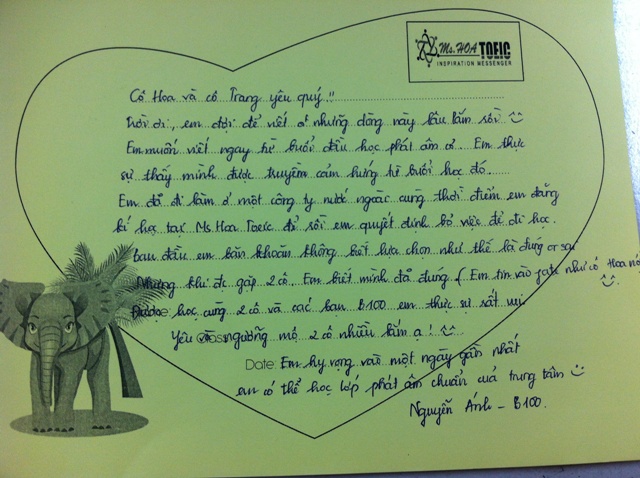 Ms. HOA TOEIC
INSPIRATION MESSENGER
Cô Hoa và cô Trang yêu quý !!
Trời ơi, em đợi để viết ở những dòng này lâu lắm rồi
Em muốn viết ngay từ buổi đầu học phát âm cơ. Em thực
sự thấy mình được truyền cảm hứng từ buổi học đó
Em đã đi làm ở một công ty nước ngoài cùng thời điểm em đăng
kí học tại Ms. Hoa Toeic để rồi em quyết định bỏ việc để đi học.
Ban đầu em băn khoăn không biết lựa chọn như thế là đúng or sai
Nhưng khi đi gặp 2 cô. Em biết mình đã đúng ( Em tin vào fate như cô Hoa nó
Được học cùng 2 cô và các bạn B100 em thực sự rất vui
Yêu và ngưỡng mộ 2 cô nhiều lắm ạ !
Date: Em hy vọng vào một ngày gần nhất
em có thể học lớp phát âm chuẩn của trung tâm
Nguyễn Ánh - B100.